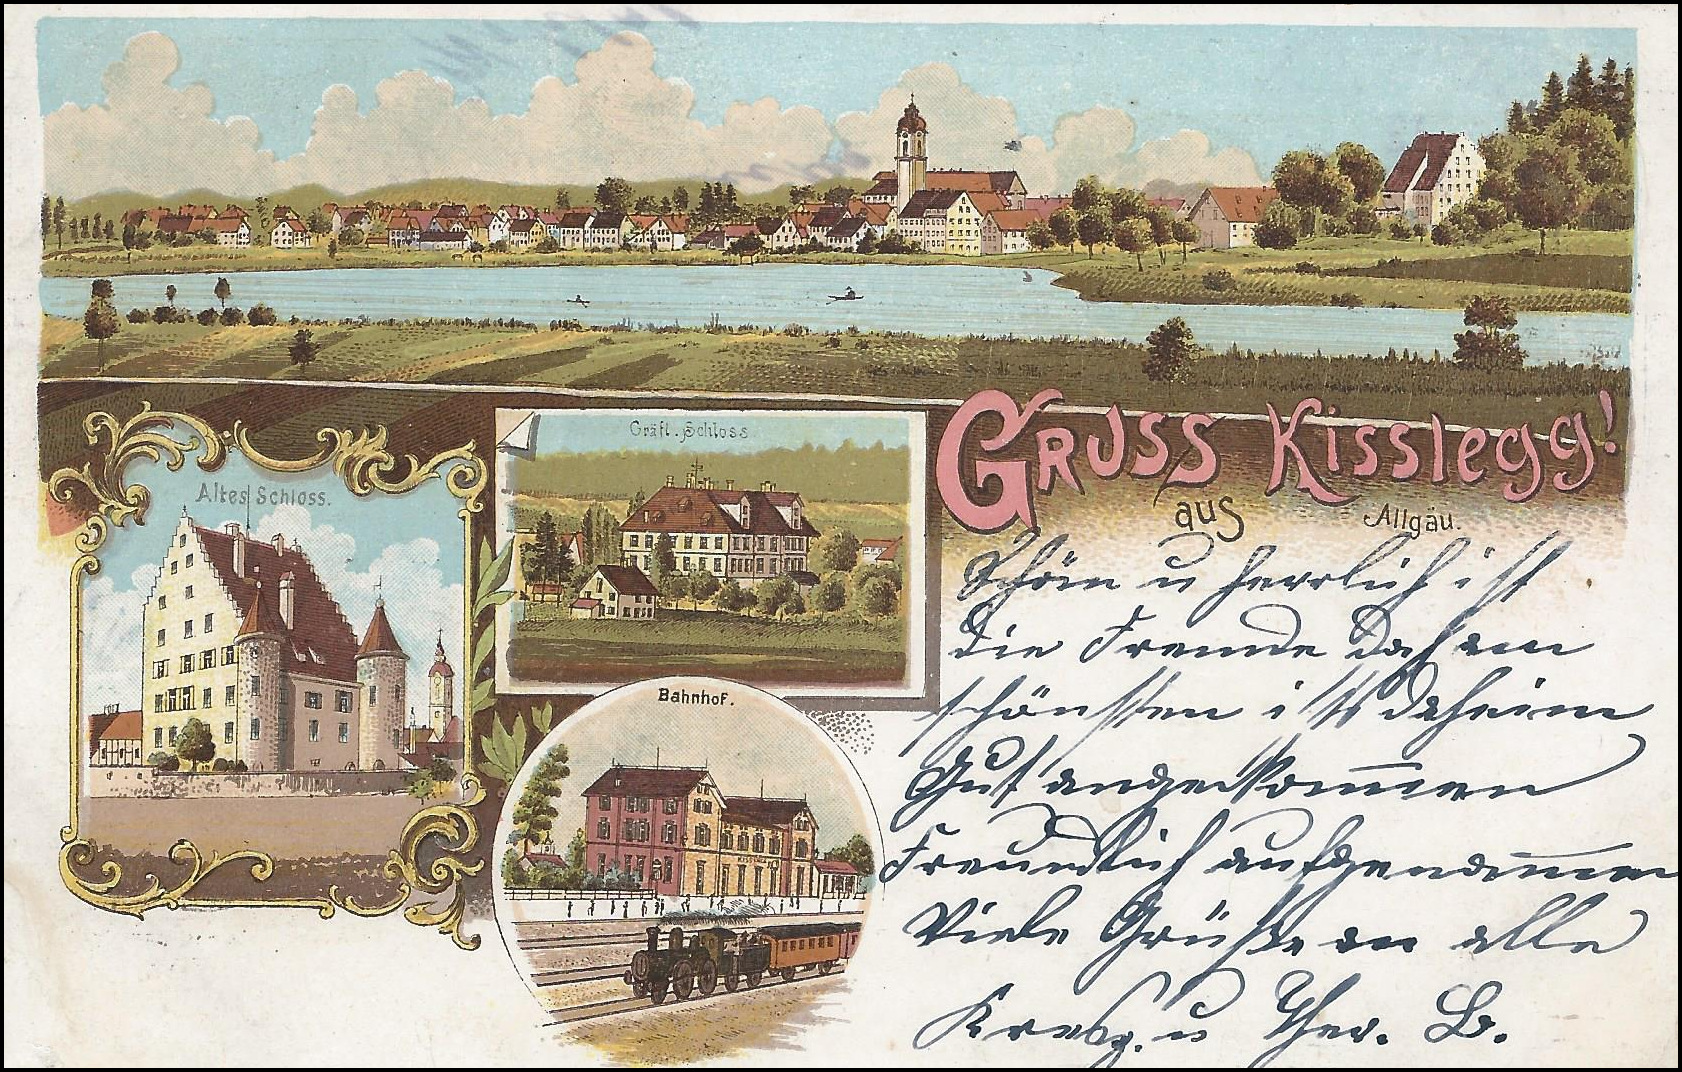 Gräfl. Schloss.
Altes Schloss.
Bahnhof.
GRUSS aus Kisslegg!
Allgäu.
Schön u herrlich ist
die Fremde Doch am
schönsten ists daheim
Gut angekommen
Freundlich aufgenommen
Viele Grüße an alle
u Ther. B.